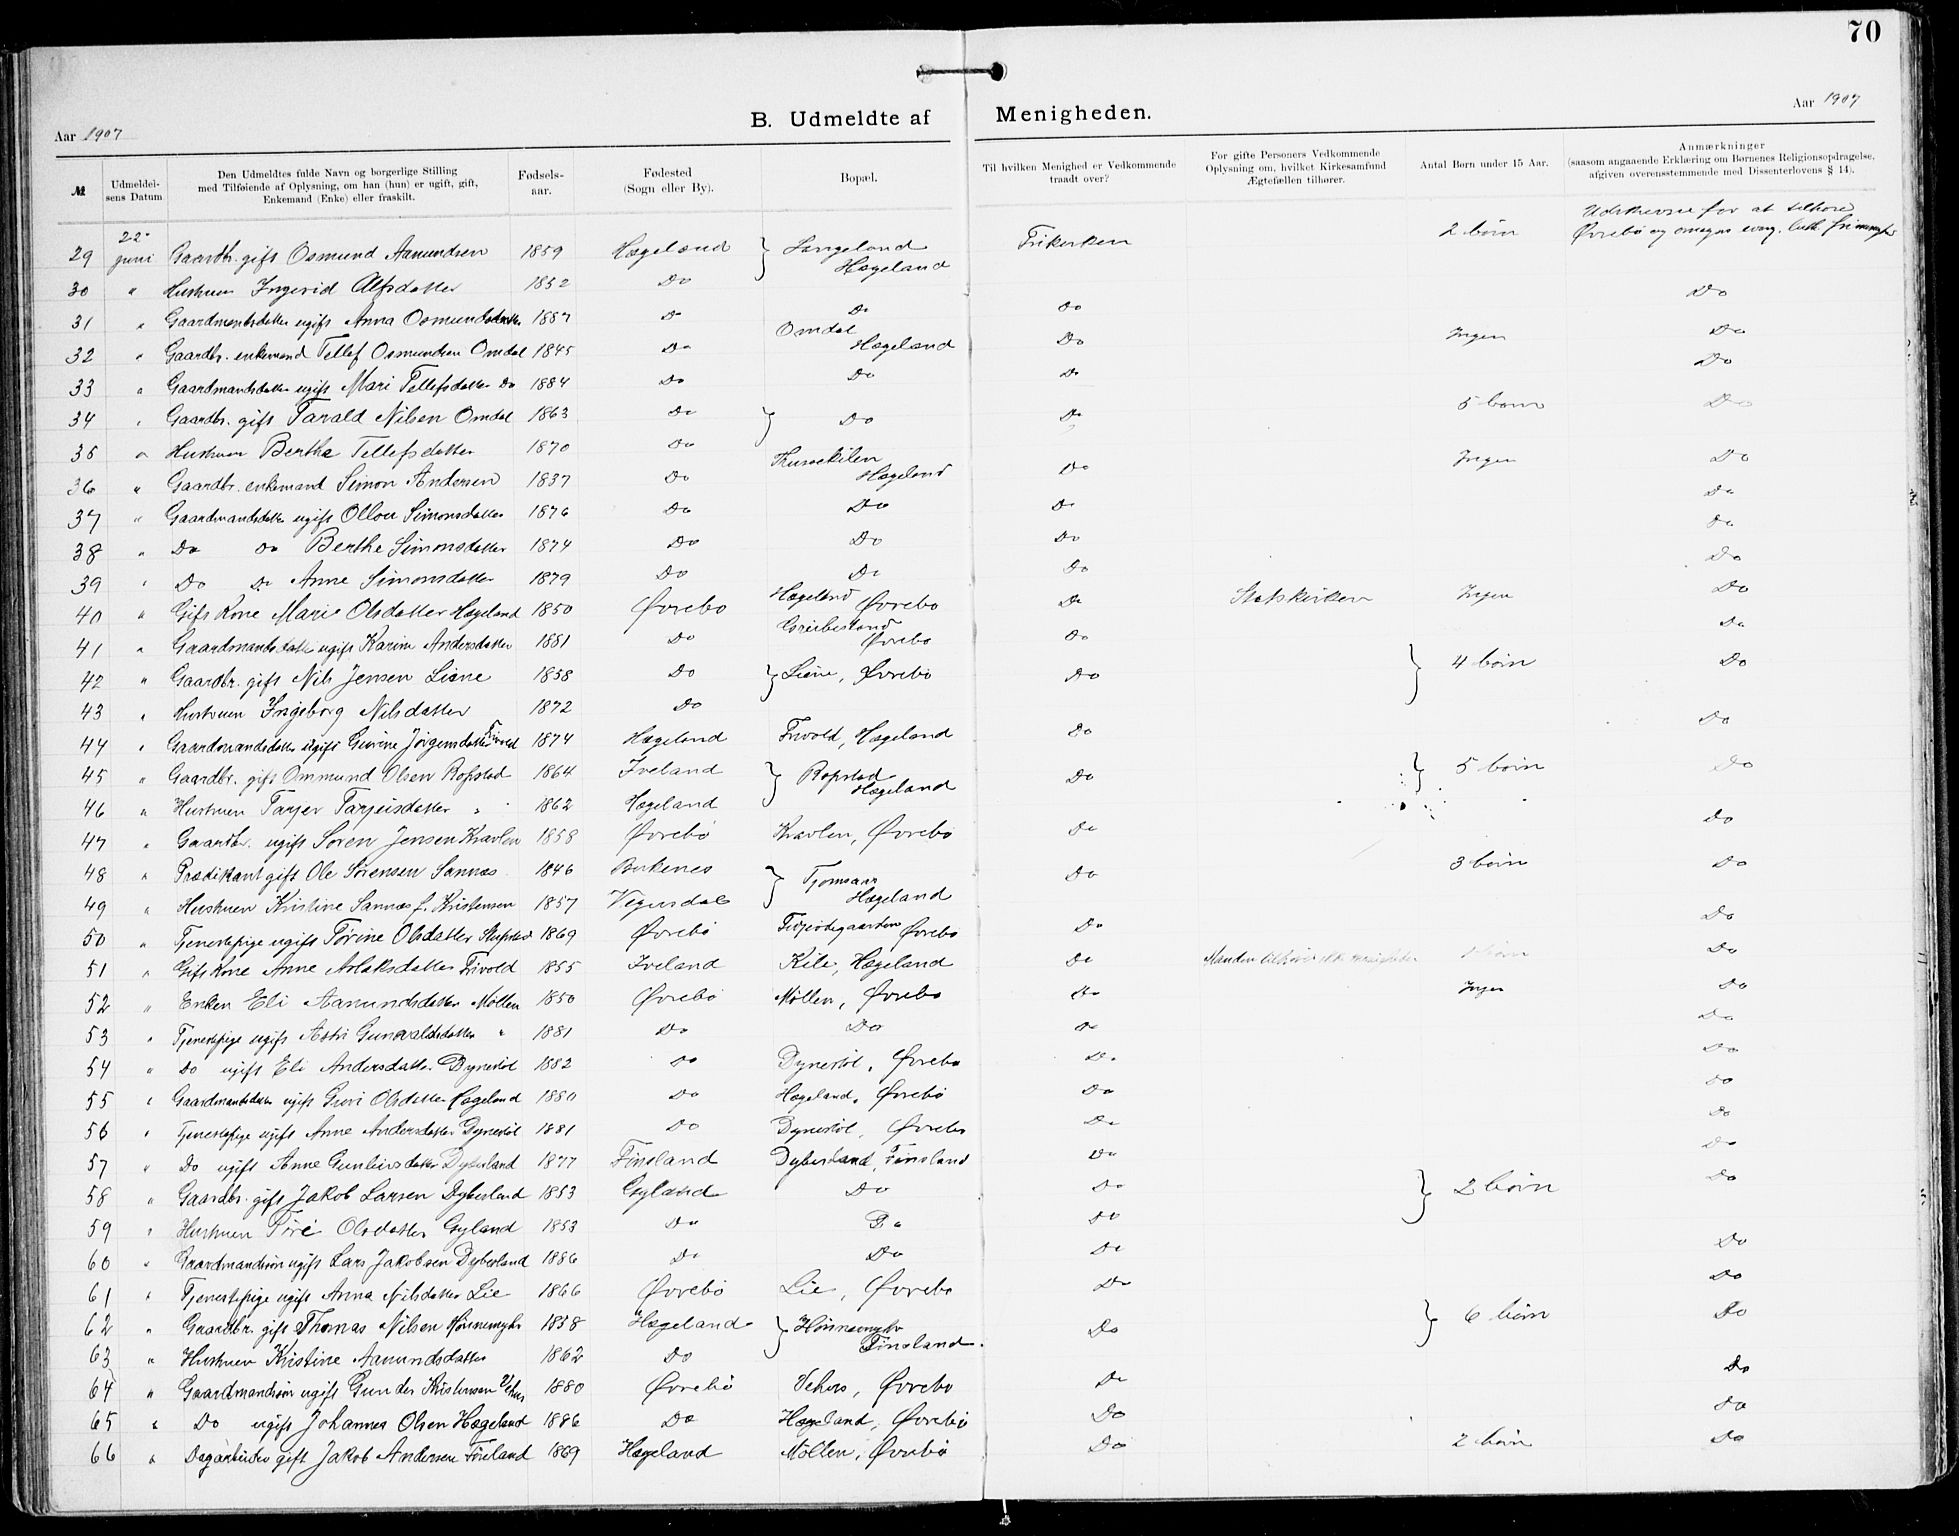 70
Aar 1907 B. Udmeldte af Menigheden. Aar 1907
№ Udmeldelsens Datum Den Udmeldtes fulde Navn og borgerlige Stilling med Tilføiende af Oplysning, om han (hun) er ugift, gift, Enkemand (Enke) eller fraskilt. Fødselsaar. Fødested (Sogn eller By). Bopæl. Til hvilken Menighed er Vedkommende traadt over? For gifte Personers Vedkommende Oplysning om, hvilket Kirkesamfund Ægtefællen tilhører. Antal Børn under 15 Aar. Anmærkninger (saasom angaaende Erklæring om Børnenes Religionsopdragelse, afgiven overensstemmende med Dissenterlovens § 14).
29 22 juni Gaardbr. gift Osmund Aanundsen 1859 Hægeland } Langeland Hægeland Frikirken 2 børn for at tilhøre Øvrebø og omegns evang. luth. frimenighed
30 " Hustruen Ingerid Alfsdatter 1852 Do Do
31 " Gaardmandsdatter ugift Anna Osmundsdatter 1887 Do Do Do
32 " Gaardbr. enkemand Tellef Osmundsen Omdal 1845 Do Omdal Hægeland Do Ingen Do
33 " Gaardmandsdatter ugift Mari Tellefsdatter Do 1884 Do Do Do Do
34 " Gaardbr. gift Tarald Nilsen Omdal 1863 Do } Do Do 5 børn Do
35 " Hustruen Berthe Tellefsdatter 1870 Do
36 " Gaardbr. enkemand Simon Andersen 1837 Do Hægeland Do Ingen Do
37 " Gaardmandsdatter ugift Ollou Simonsdatter 1876 Do Do Do Do
38 " Do Do Berthe Simonsdatter 1874 Do Do Do Do
39 " Do Do Anne Simonsdatter 1879 Do Do Do Do
40 " Gift Kone Marie Olsdatter Hægeland 1850 Øvrebø Hægeland Øvrebø Do Statskirken Ingen Do
41 " Gaardmandsdatter ugift Karine Andersdatter 1881 Do Øvrebø Do Do
42 " Gaardbr. gift Nils Jensen Liene 1858 Do } Liene, Øvrebø Do } 4 børn Do
43 " Hustruen Ingeborg Nilsdatter 1872 Do
44 " Gaardmandsdatter ugift Gurine Jörgensdatter Frivold 1874 Hægeland Frivold, Hægeland Do Do
45 " Gaardbr. gift Ommund Olsen Ropstad 1864 Iveland } Ropstad Hægeland Do } 5 børn Do
46 " Hustruen Tarjer Tarjeisdatter " 1862 Hægeland
47 " Gaardbr. ugift Sören Jensen Kravlen 1858 Øvrebø Kravlen, Øvrebø Do Do
48 " Prædikant gift Ole Sörensen Sannæs 1846 } Hægeland Do 3 børn Do
49 " Hustruen Kristine Sannæs f. Kristensen 1857 Vegusdal
50 " Tjenestepige ugift Törine Olsdatter 1869 Øvrebø Øvrebø Do Do
51 " Gift Kone Anne Aslaksdatter Frivold 1855 Iveland Kile, Hægeland Do Manden tilhører ikke Do
52 " Enken Eli Aanundsdatter Møllen 1850 Øvrebø Møllen, Øvrebø Do Ingen Do
53 " Tjenestepige ugift Astri Gunvaldsdatter " 1881 Do Do Do Do
54 " Do ugift Eli Andersdatter Dynestöl 1882 Do Dynestöl, Øvrebø Do Do
55 " Gaardmandsdatter ugift Guri Olsdatter Hægeland 1880 Do Hægeland, Øvrebø Do Do
56 " Tjenestepige ugift Anne Andersdatter Dynestöl 1881 Do Dynestöl, Øvrebø Do Do
57 " Do ugift Anne Gunleivsdatter Dyberland 1877 Finsland Dyberland, Finsland Do Do
58 " Gaardbr. gift Jakob Larsen Dyberland 1853 Gyland Do Do } 2 børn Do
59 " Hustruen Töré Olsdatter Gyland 1853 Do Do Do
60 " Gaardmandssön ugift Lars Jakobsen Dyberland 1886 Do Do Do Do
61 " Tjenestepige ugift Anna Nilsdatter Lie 1866 Øvrebø Lie, Øvrebø Do Do
62 " Gaardbr. gift Thomas Nilsen Hönnemyhr 1858 Hægeland } Hönnemyhr Finsland. Do } 6 børn Do
63 " Hustruen Kristine Aanundsdatter 1862 Do
64 " Gaardmandssön ugift Gunder Kristensen Vehus 1880 Øvrebø Vehus, Øvrebø Do Do
65 " Do ugift Johannes Olsen Hægeland 1886 Do Hægeland, Øvrebø Do Do
66 " Dagarbeider gift Jakob Andersen Föreland 1869 Hægeland Møllen, Øvrebø Do 2 børn Do